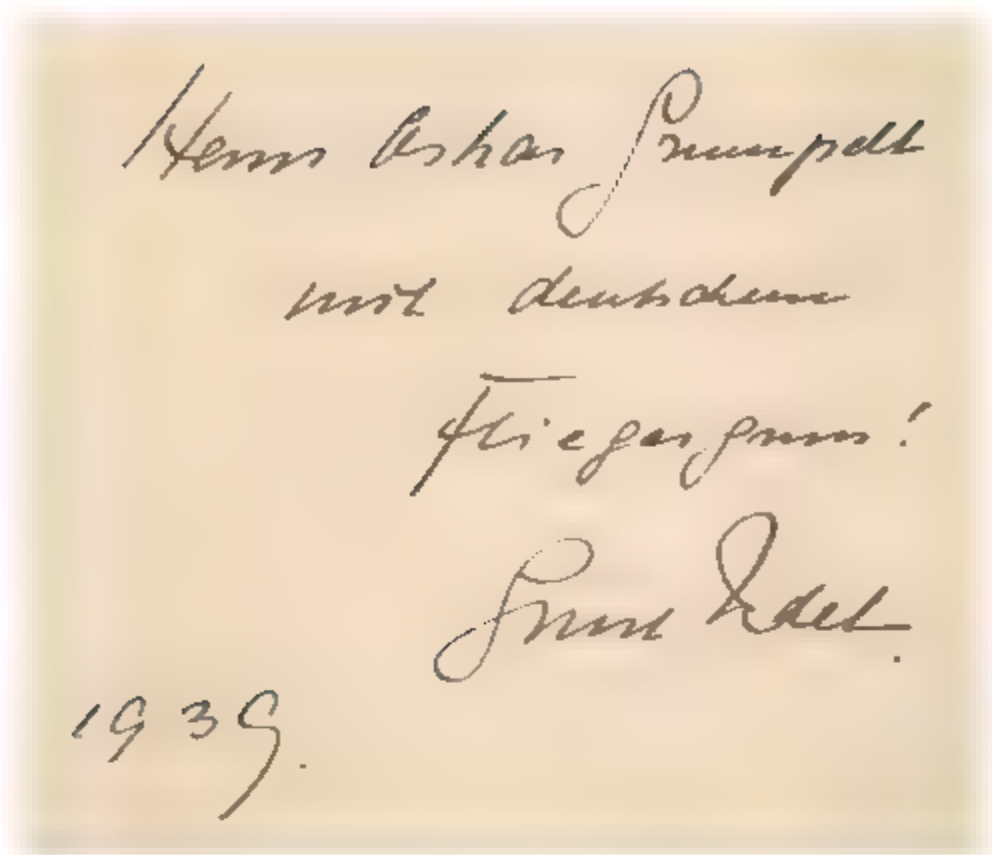 Herrn Oskar
mit deutschem
Fliegergruss!
Ernst Udet.
1939.